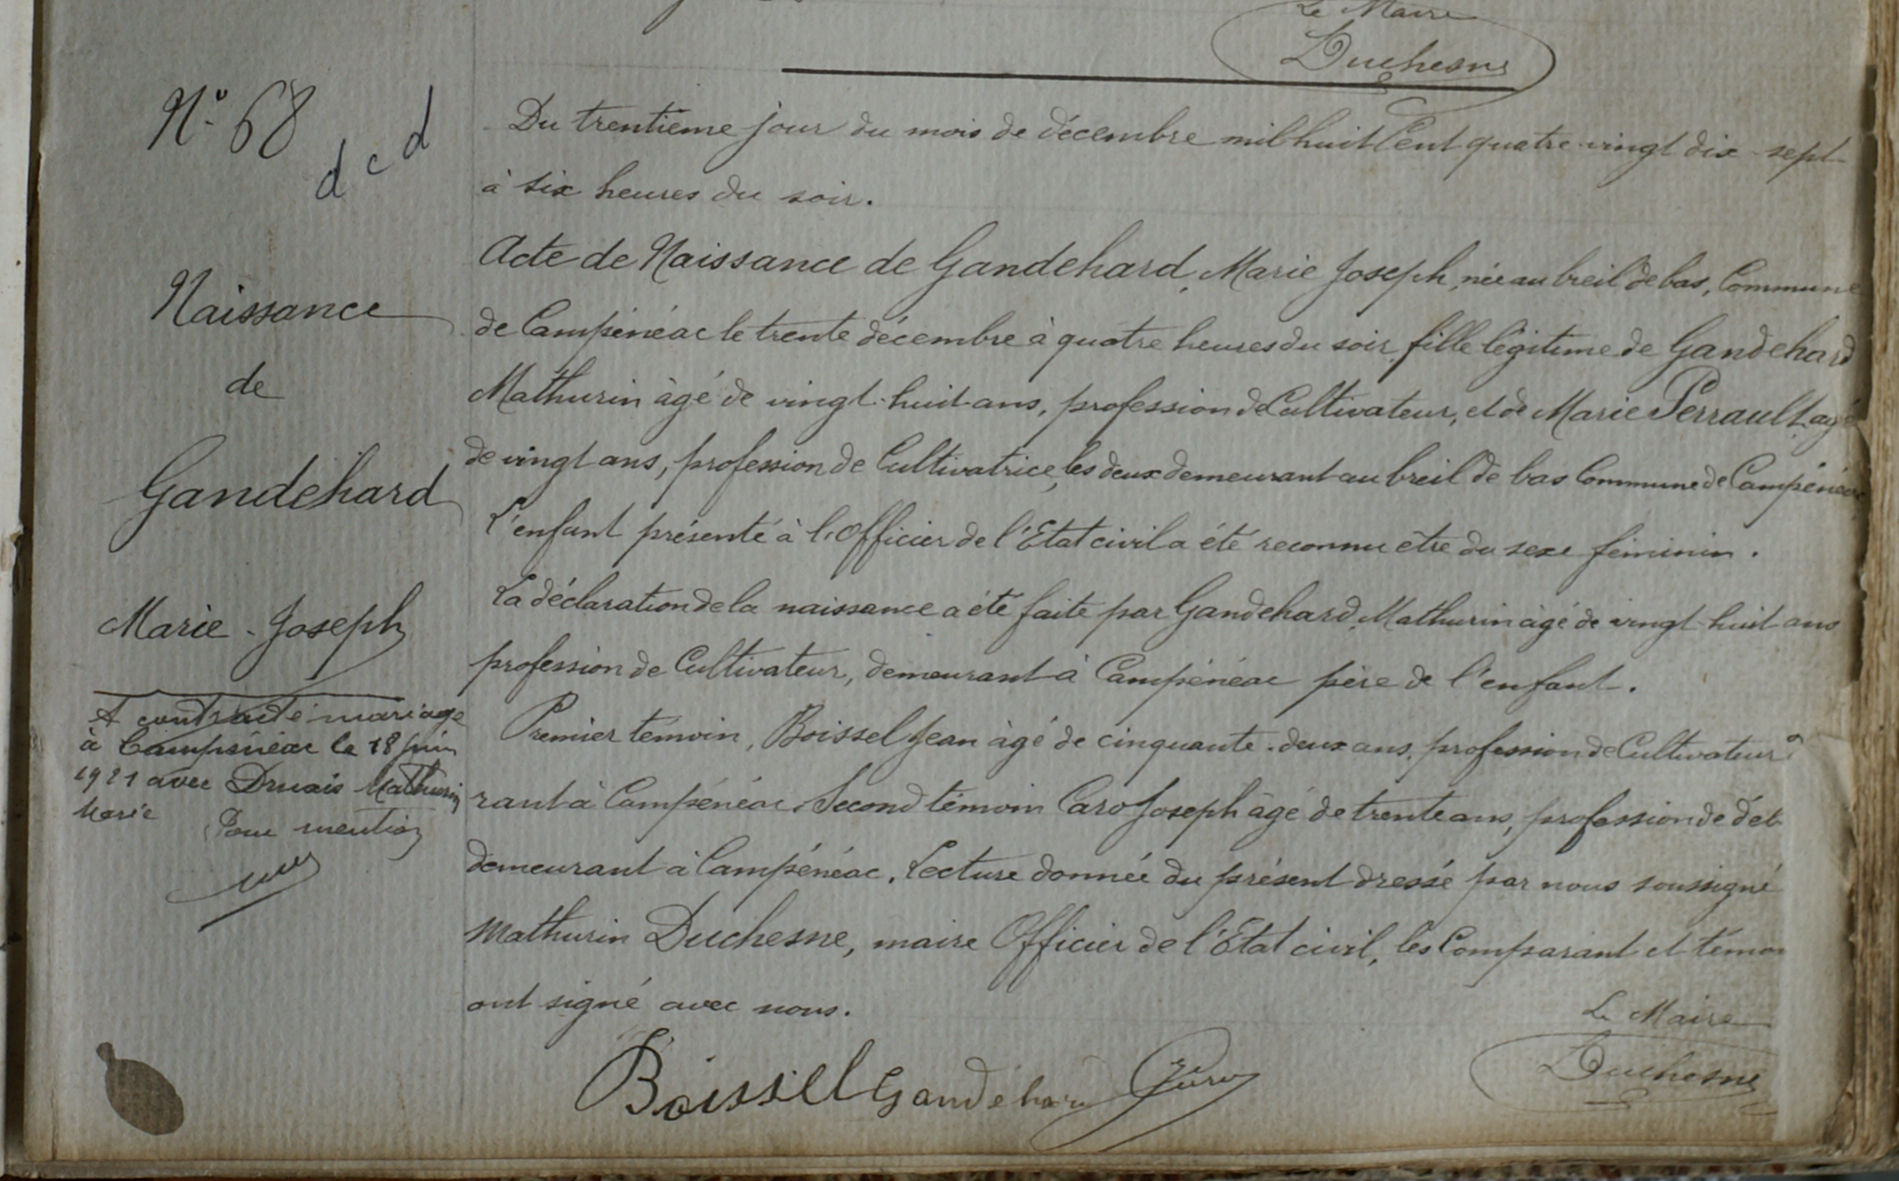 Le Maire
Duchesne
N° 68
dcd
Naissance
de
Gandehard
Marie-Joseph
A contracté mariage
à Campénéac le 18 juin
1921 avec Druais Mathurin
Marie Pour mention
Du trentième jour du mois de décembre mil huit Cent quatre vingt dix-sept
à six heures du soir.
Acte de Naissance de Gandehard, Marie Joseph, née au breil de bas, Commune
de Campénéac le trente décembre à quatre heures du soir, fille légitime de Gandehard
Mathurin âgé de vingt-huit-ans, profession de Cultivateur, et de Marie Perrault, agé
de vingt ans, profession de Cultivatrice, les deux demeurant au breil de bas Commune de Campénéac
L'enfant présenté à l'Officier de l'Etat civil a été reconnu être du sexe féminin.
La déclaration de la naissance a été faite par Gandehard, Mathurin âgé de vingt-huit ans
profession de Cultivateur, demeurant à Campénéac père de l'enfant.
Premier témoin, Boissel Jean âgé de cinquante-deux ans, profession de Cultivateur d
rant à Campénéac. Second témoin Caro Joseph âgé de trente ans, profession de déb
demeurant à Campénéac. Lecture donnée du présent dressé par nous soussigné
Mathurin Duchesne, maire Officier de l'Etat civil, les Comparant et témo
ont signé avec nous.
Le Maire
Boissel Gandehard Caro Duchesne